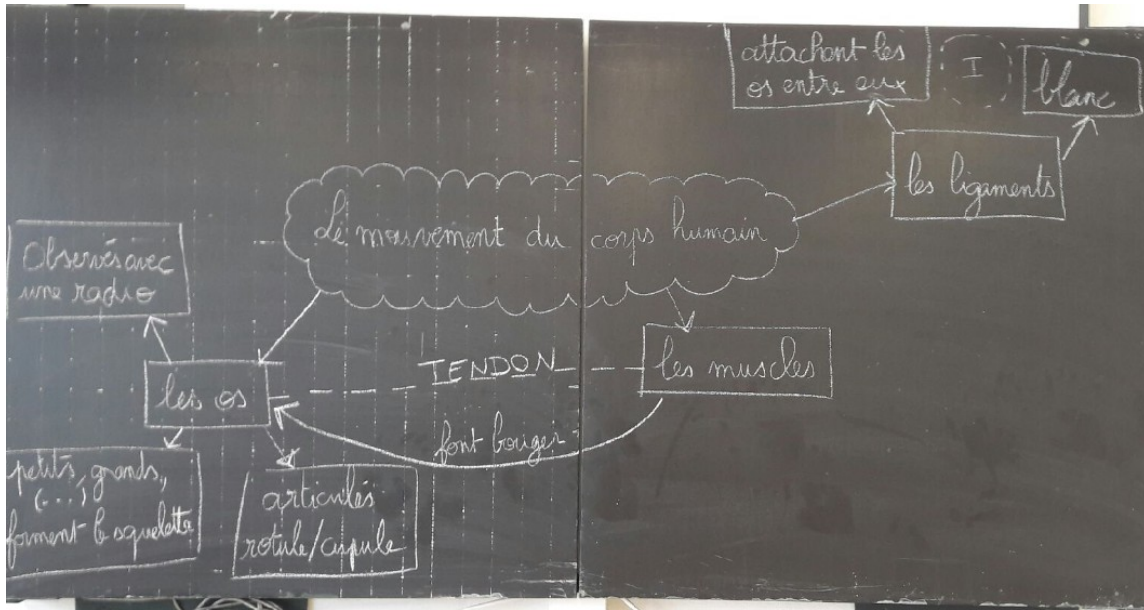 attachant les
os entre eux
I
blanc
les ligaments
Le mouvement du corps humain
Observés avec
une radio
TENDON
les muscles
les os
font bouger
petits, grands,
(...)
forment le squelette
articulés
rotule/cupule